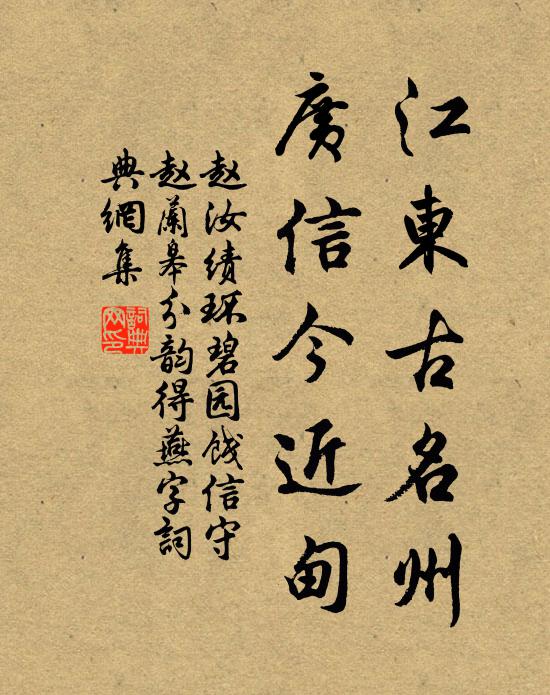 江東古名州
廣信今近甸
赵汝绩环碧园饯信守
赵蘭皋分韵得燕字詞
典網集
詞典
网印